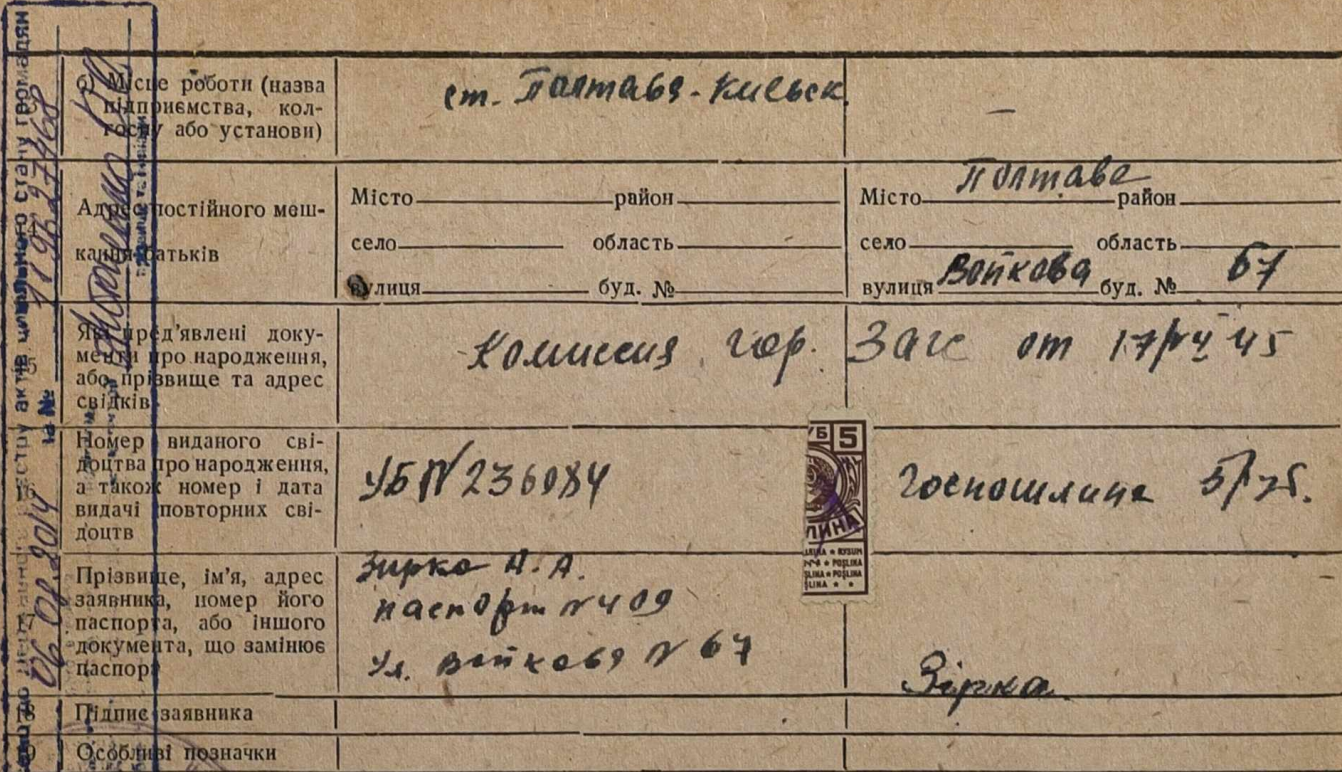 б) Місце роботи (назва
підприємства, кол-
госпу або установи)
ст. Полтава-Киевск.
–
Адрес постійного меш-
кання батьків
Місто район
село область
вулиця буд. №
Місто Полтава район
село область
вулиця Войкова буд. № 67
15
Які пред'явлені доку-
менти про народження,
або прізвище та адрес
свідків
Комиссия гор. Загс от 17/IV 45
16
Номер виданого сві-
доцтва про народження,
а також номер і дата
видачі повторних сві-
доцтв
УБ № 236084
УБ 5
ЛИНА
Госпошлина 5/р.
17
Прізвище, ім'я, адрес
заявника, номер його
паспорта, або іншого
документа, що замінює
паспорт
Зирка А. А.
паспорт № 409
Ул. Войкова № 67
Зірка
18
Підпис заявника
19
Особливі позначки
стану громадян
за №
06.02.2014